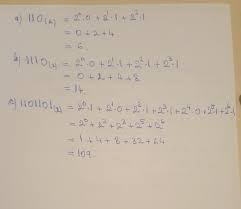 a) 110₍₂₎ = 2⁰·0 + 2¹·1 + 2²·1
= 0 + 2 + 4
= 6.
b) 1110₍₂₎ = 2⁰·0 + 2¹·1 + 2²·1 + 2³·1
= 0 + 2 + 4 + 8
= 14.
c) 1101101₍₂₎ = 2⁰·1 + 2¹·0 + 2²·1 + 2³·1 + 2⁴·0 + 2⁵·1 + 2⁶·1
= 2⁰ + 2² + 2³ + 2⁵ + 2⁶
= 1 + 4 + 8 + 32 + 64
= 109.